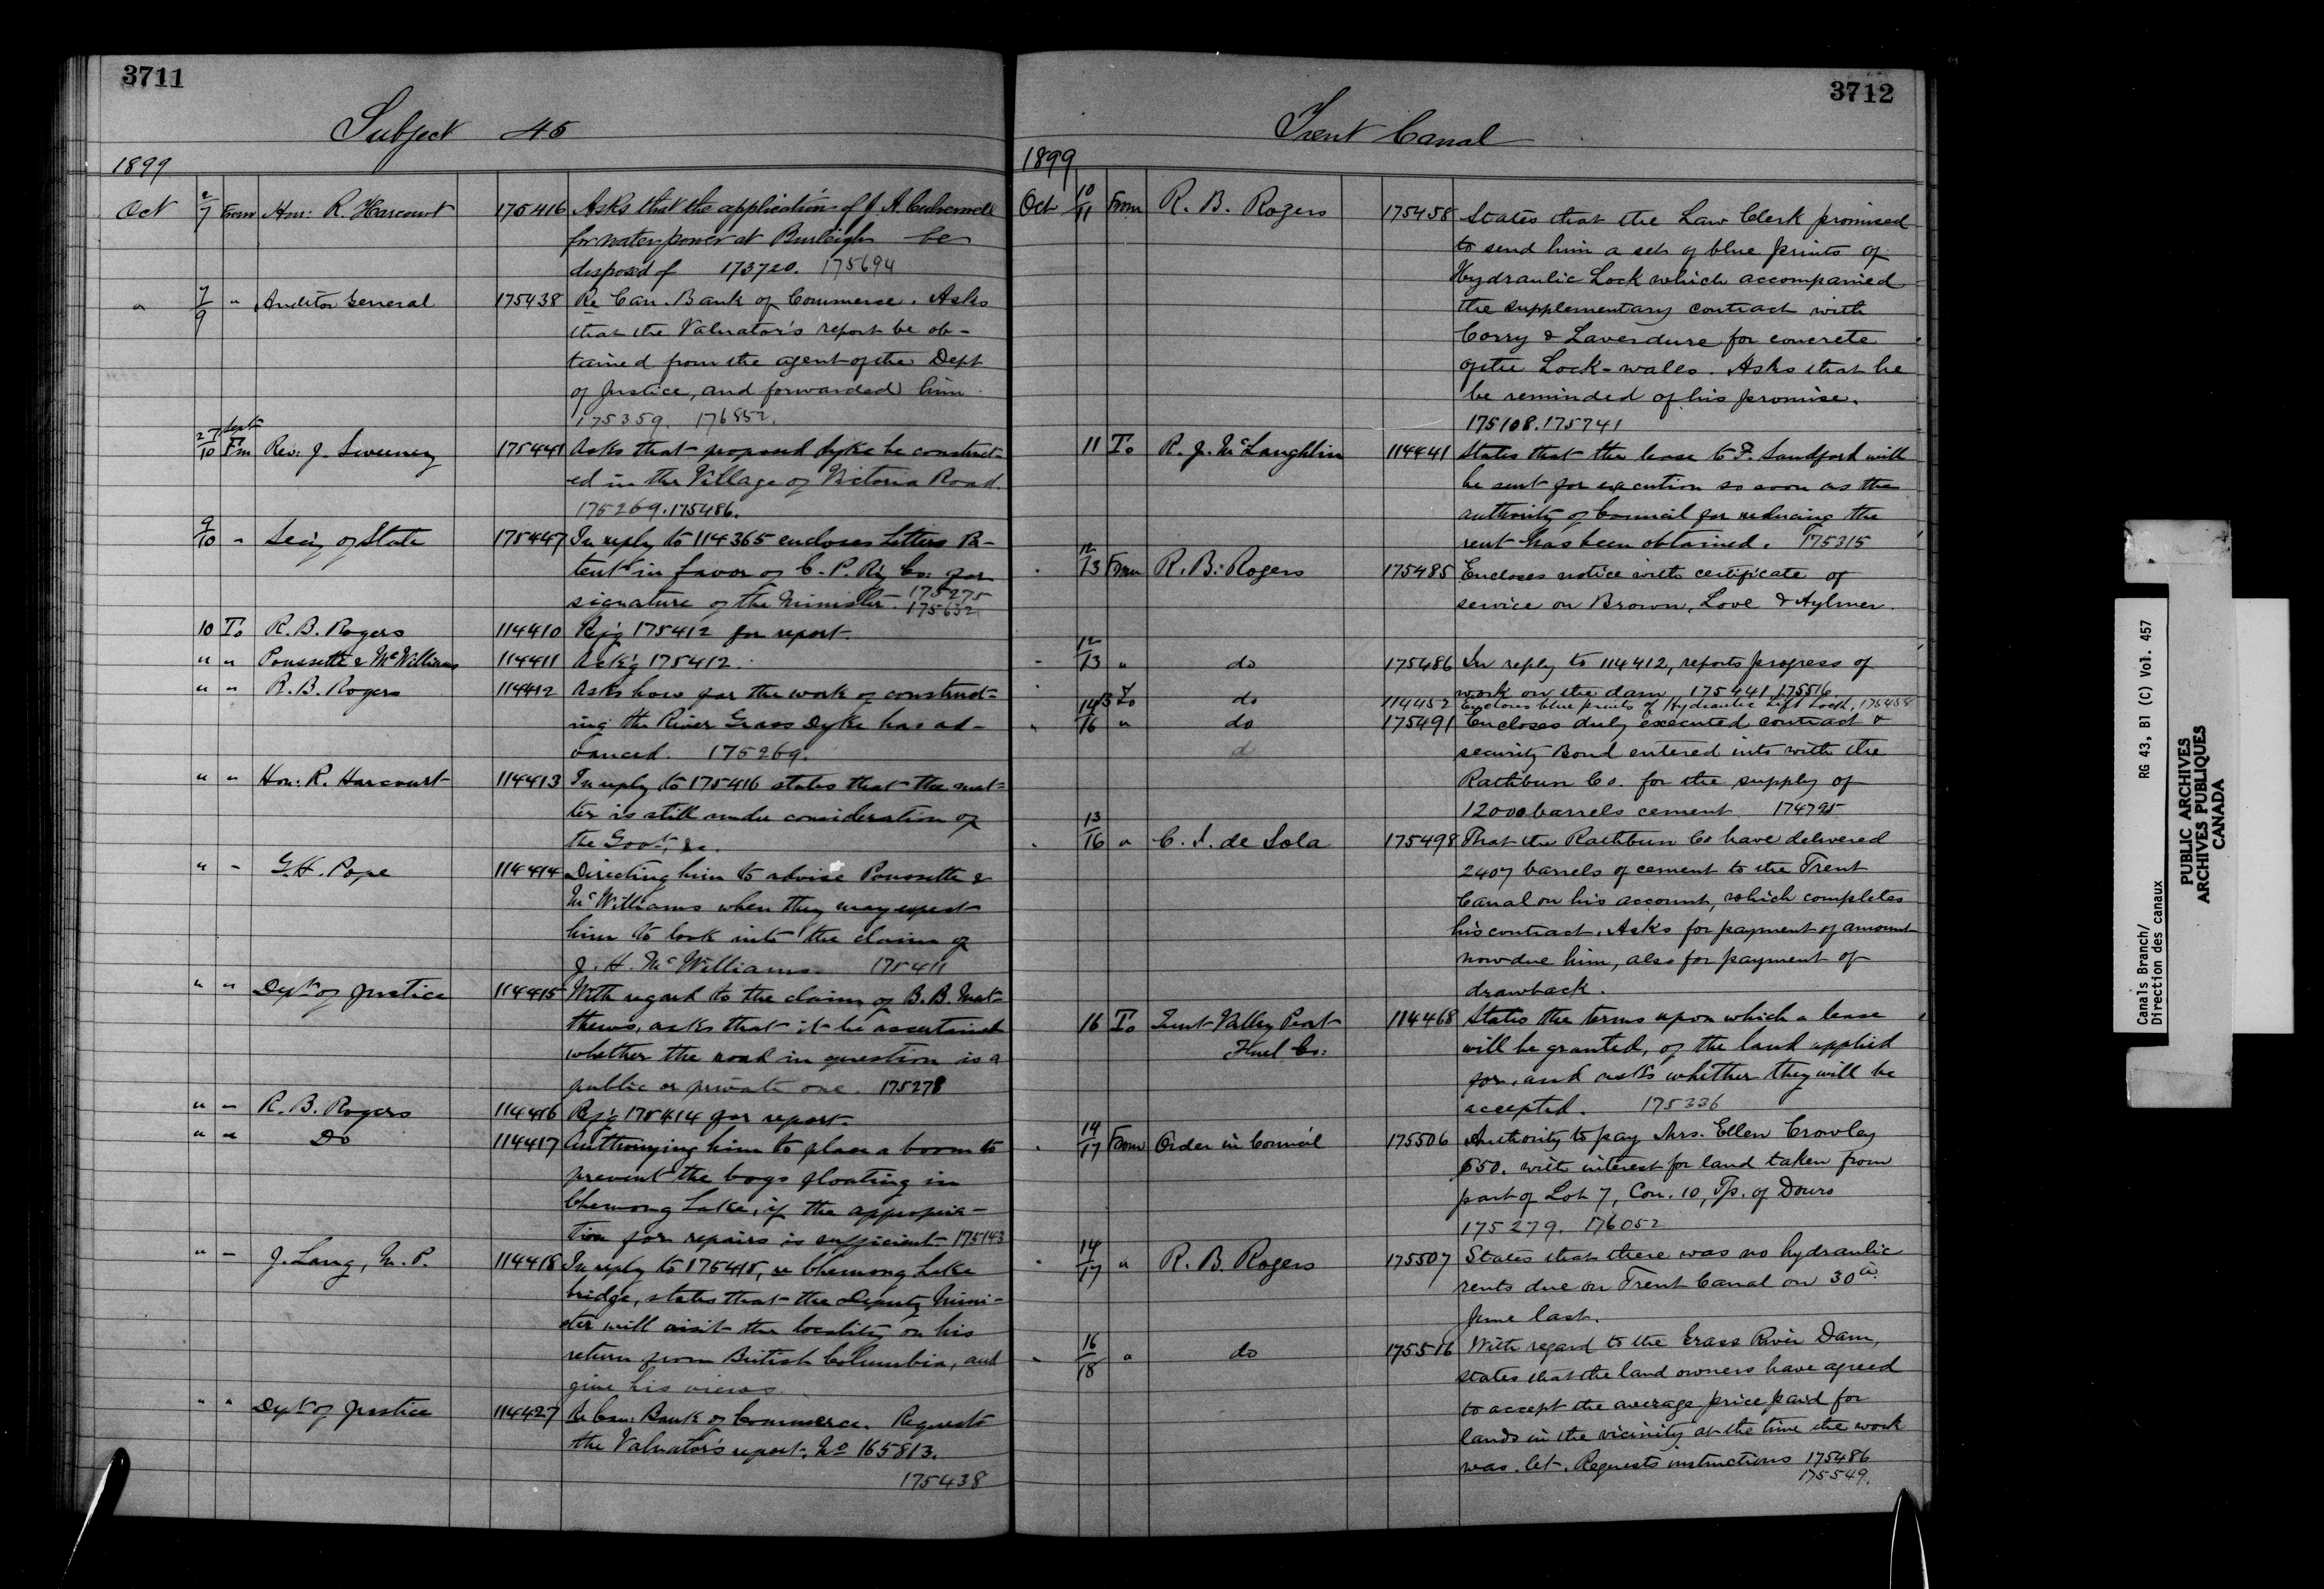 3711
Subject 45
1899
Oct 2/7 From Hon: R. Harcourt 175416 Asks that the application of J. A. Culverwell
for water power at Burleigh be
disposed of 173720. 175694
" 7/9 " Auditor General 175438 Re Can. Bank of Commerce. Asks
that the Valuator's report be ob-
tained from the agent of the Dept
of Justice, and forwarded him
175359. 176852.
Sept
27/10 Fm Rev: J. Sweeney 175441 Asks that proposed dyke be construct-
ed in the Village of Victoria Road.
175269. 175486.
9/10 " Sec'y of State 175447 In reply to 114365 encloses Letters Pa-
tent in favor of C. P. Ry Co: for
signature of the Minister. 175275
175632
10 To R. B. Rogers 114410 Ref'g 175412 for report.
" " Poussette & McWilliams 114411 Ack'g 175412.
" " R. B. Rogers 114412 Asks how far the work of construct-
ing the River Grass Dyke has ad-
vanced. 175269.
" " Hon: R. Harcourt 114413 In reply to 175416 states that the mat-
ter is still under consideration of
the Govt, &c.
" " G. H. Pope 114414 Directing him to advise Poussette &
McWilliams when they may expect
him to look into the claim of
J. H. McWilliams. 175411
" " Dept of Justice 114415 With regard to the claim of B. B. Mat-
thews, asks that it be ascertained
whether the road in question is a
public or private one. 175278
" " R. B. Rogers 114416 Ref'g 175414 for report.
" " Do 114417 Authorizing him to place a boom to
prevent the bogs floating in
Chemong Lake, if the appropria-
tion for repairs is sufficient 175143
" " J. Lang, M. P. 114418 In reply to 175415, re Chemong Lake
bridge, states that the Deputy Mini-
ster will visit the locality on his
return from British Columbia, and
give his views
" " Dept of Justice 114427 Re Can: Bank of Commerce. Requests
the Valuator's report, No 165813.
175438
3712
Trent Canal
1899
Oct 10/11 From R. B. Rogers 175458 States that the Law Clerk promised
to send him a set of blue prints of
Hydraulic Lock which accompanied
the supplementary contract with
Corry & Laverdure for concrete
of the Lock-walls. Asks that he
be reminded of his promise.
175108. 175741
11 To R. J. McLaughlin 114441 States that the lease to F. Sandford will
be sent for execution so soon as the
authority of Council for reducing the
rent has been obtained. 175315
" 12/13 From R. B. Rogers 175485 Encloses notice with certificate of
service on Brown, Love & Aylmer.
" 12/13 " do 175486 In reply to 114412, reports progress of
work on the dam 175441 175516.
13 To do 114452 Encloses blue prints of Hydraulic Lift Lock, 175458
" 14/16 " do 175491 Encloses duly executed contract &
security Bond entered into with the
Rathbun Co. for the supply of
12000 barrels cement 174795
" 13/16 " C. I. de Sola 175498 That the Rathbun Co have delivered
2407 barrels of cement to the Trent
Canal on his account, which completes
his contract. Asks for payment of amount
now due him, also for payment of
drawback.
16 To Trent Valley Peat
Fuel Co: 114468 States the terms upon which a lease
will be granted, of the land applied
for, and asks whether they will be
accepted. 175336
" 14/17 From Order in Council 175506 Authority to pay Mrs. Ellen Crowley
$50. with interest for land taken from
part of Lot 7, Con. 10, Tp. of Douro
175279. 176052
" 14/17 " R. B. Rogers 175507 States that there was no hydraulic
rents due on Trent Canal on 30th
June last.
" 16/18 " do 175516 With regard to the Grass River Dam,
states that the land owners have agreed
to accept the average price paid for
lands in the vicinity at the time the work
was let. Requests instructions 175486
175549.
Canals Branch/
Direction des canaux
RG 43, B1 (C) Vol. 457
PUBLIC ARCHIVES
ARCHIVES PUBLIQUES
CANADA